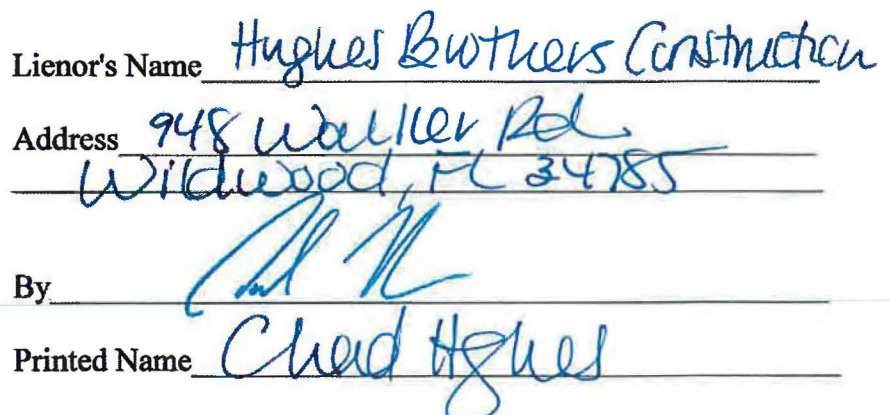 Lienor's Name Hughes Brothers Construction
Address 948 Walker Rd
Wildwood, FL 34785
By
Printed Name Chad Hghes